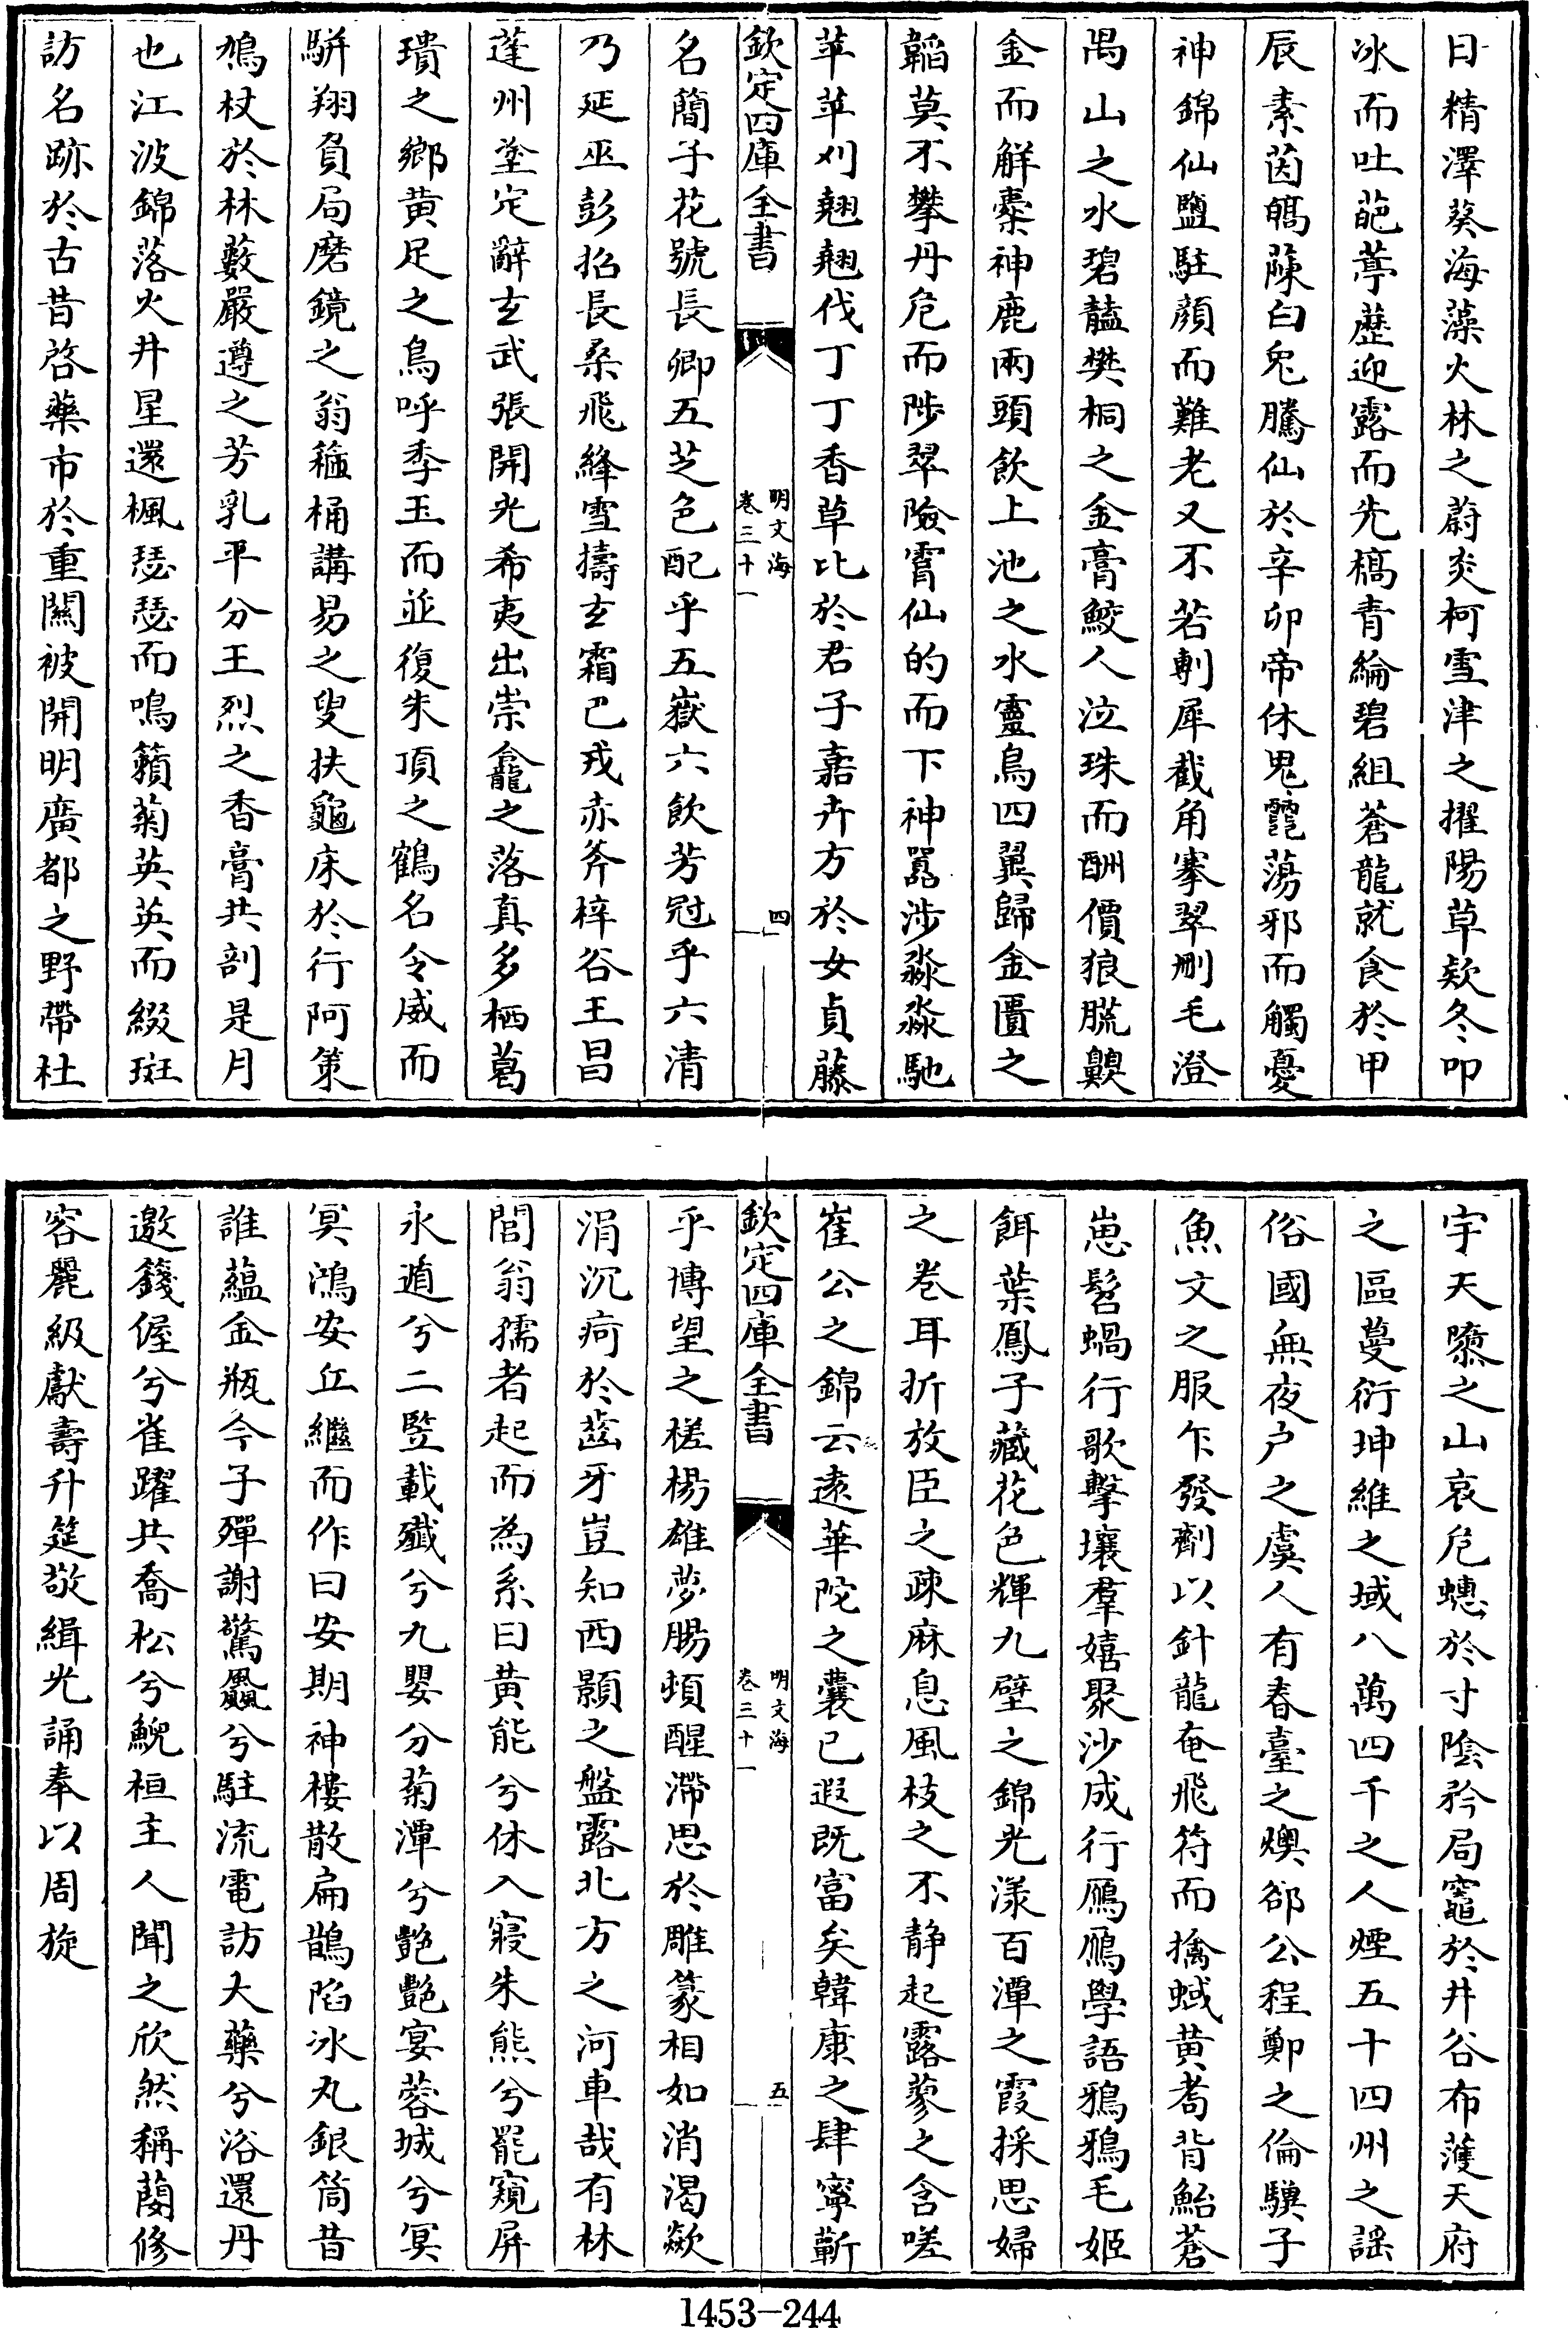 日精澤葵海藻火林之蔚炎柯雪津之擢陽草欵冬叩
冰而吐葩葶藶迎露而先槁青綸碧組蒼龍就食於甲
辰素茵皜蔯白兎騰仙於辛卯帝休鬼䨴蕩邪而觸憂
神錦仙鹽駐顏而難老又不若剸犀截角搴翠刪毛澄
禺山之水碧䕻樊桐之金膏鮫人泣珠而酬價狼䐽䶉
金而觧橐神鹿兩頭飲上池之水靈鳥四翼歸金匱之
韜莫不攀丹危而陟翠險霄仙的而下神嚣涉淼淼馳
苹苹刈翹翹伐丁丁香草比於君子嘉卉方於女貞藤
欽定四庫全書
明文海
卷三十一
四
名簡子花號長卿五芝色配乎五嶽六飲芳冠乎六清
乃延巫彭招長桑飛絳雪擣玄霜巴戎赤斧梓谷王昌
蓬州堂定辭玄武張開光希夷出崇龕之落真多栖葛
璝之鄉黄足之鳥呼季玉而並復朱頂之鶴名令威而
駢翔負局磨鏡之翁箍桶講易之叟扶龜床於行阿策
鳩杖於林藪嚴遵之芳乳平分王烈之香膏共剖是月
也江波錦落火井星還楓瑟瑟而鳴籟菊英英而綴斑
訪名跡於古昔啓藥市於重闗被開明廣都之野帶杜
宇天隳之山哀危蟪於寸隂矜局竈於井谷布䕶天府
之區蔓衍坤維之域八萬四千之人煙五十四州之謡
俗國無夜户之虞人有春臺之燠郤公程鄭之倫驥子
魚文之服乍發劑以針龍奄飛符而擒蜮黄耉背鮐蒼
崽髫蝸行歌擊壤羣嬉聚沙成行鴈鴈學語鴉鴉毛姬
餌葉鳳子藏花色輝九壁之錦光漾百潭之霞採思婦
之卷耳折放臣之疎麻息風枝之不静起露蓼之含嗟
崔公之錦云遠華陀之囊已遐既富矣韓康之肆寧蘄
欽定四庫全書
明文海
卷三十一
五
乎博望之槎楊雄夢腸頓醒滯思於雕篆相如消渴歘
涓沉疴於齒牙豈知西顥之盤露北方之河車哉有林
閭翁孺者起而為系曰黄能兮休入寢朱熊兮罷窺屏
永遁兮二竪載殲兮九嬰分菊潭兮艷艷宴蓉城兮冥
冥鴻安丘繼而作曰安期神樓散扁鵲陷冰丸銀筒昔
誰蘊金瓶今子殫謝驚飍兮駐流電訪大藥兮浴還丹
邀籛偓兮雀躍共喬松兮鯢桓主人聞之欣然稱蘭修
容麗級獻壽升筵敬緝光誦奉以周旋
1453-244